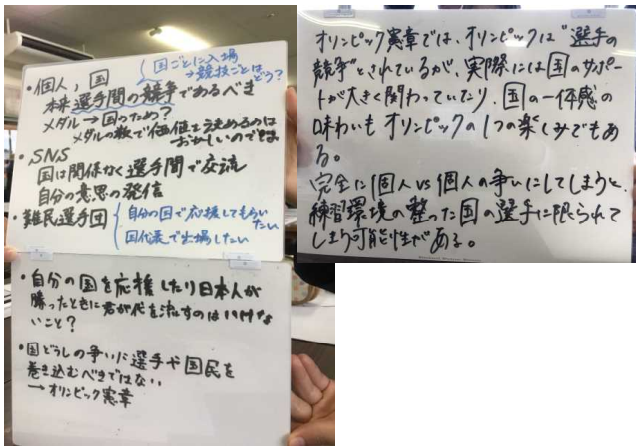 ・個人、国
国ごとに入場
→競技ごとは
どう?
本来選手間の競争であるべき
メダル→国のため?
メダルの数で価値を決めるのは
おかしいのでは
・SNS
国は関係なく選手間で交流
自分の意思の発信
・難民選手団
自分の国で応援してもらい
たい
国代表で出場したい
・自分の国を応援したり日本人が
勝ったときに君が代を流すのはいけな
いこと?
・国どうしの争いに選手や国民を
巻き込むべきではない
→オリンピック憲章
オリンピック憲章では、オリンピックは"選手の
競争"とされているが、実際には国のサポー
トが大きく関わっていたり、国の一体感の
味わいもオリンピックの1つの楽しみでもあ
る。
完全に個人vs個人の争いにしてしまうと、
練習環境の整った国の選手に限られて
しまう可能性がある。